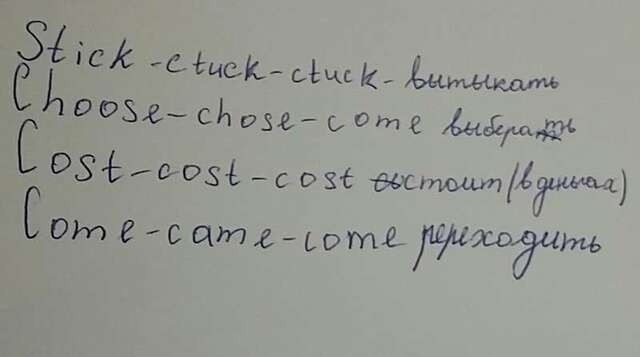 Stick - ctuck - ctuck - вытыкать
Choose - chose - come выберать
Cost - cost - cost стоит (в деньгах)
Come - came - come переходить